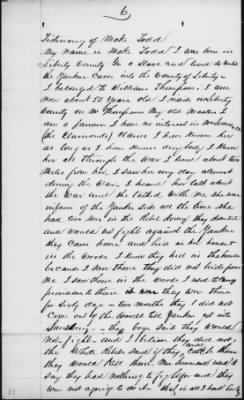 6
Testimony of Moke Todd
My name is Moke Todd I was born in
Liberty County Ga a Slave and lived so until
the Yankees Came into the County of Liberty
I belonged to William Thompson. I am
now about 50 Years old I reside in Liberty
County on Mr Thompson my old Master I
am a farmer I have no interest in
(the Claimants) Claim I have known her
as long as I have known any body, I knew
her all through the War I lived about two
Miles from her, I saw her my day almost
during the War, I heard her talk about
the War and She talked with Me She was
in favor of the Yankee Side all the time She
had two sons in the Rebel Army they deserted
and would not fight against the Yankees
they Came home and hid in her house &
in the woods I know they hid in the house
because I saw them they did not hide from
Me I saw them in the woods I used to carry
provisions to them it was they was there
for sixty days or two months they did not
Come out of the woods till Yankees got into
they Boys Said they would
not fight and I believe they did not,
the White Rebels said if they could catch them
they would Kill them
Say they had nothing to fight for and they
were not agoing to do it that is all I know